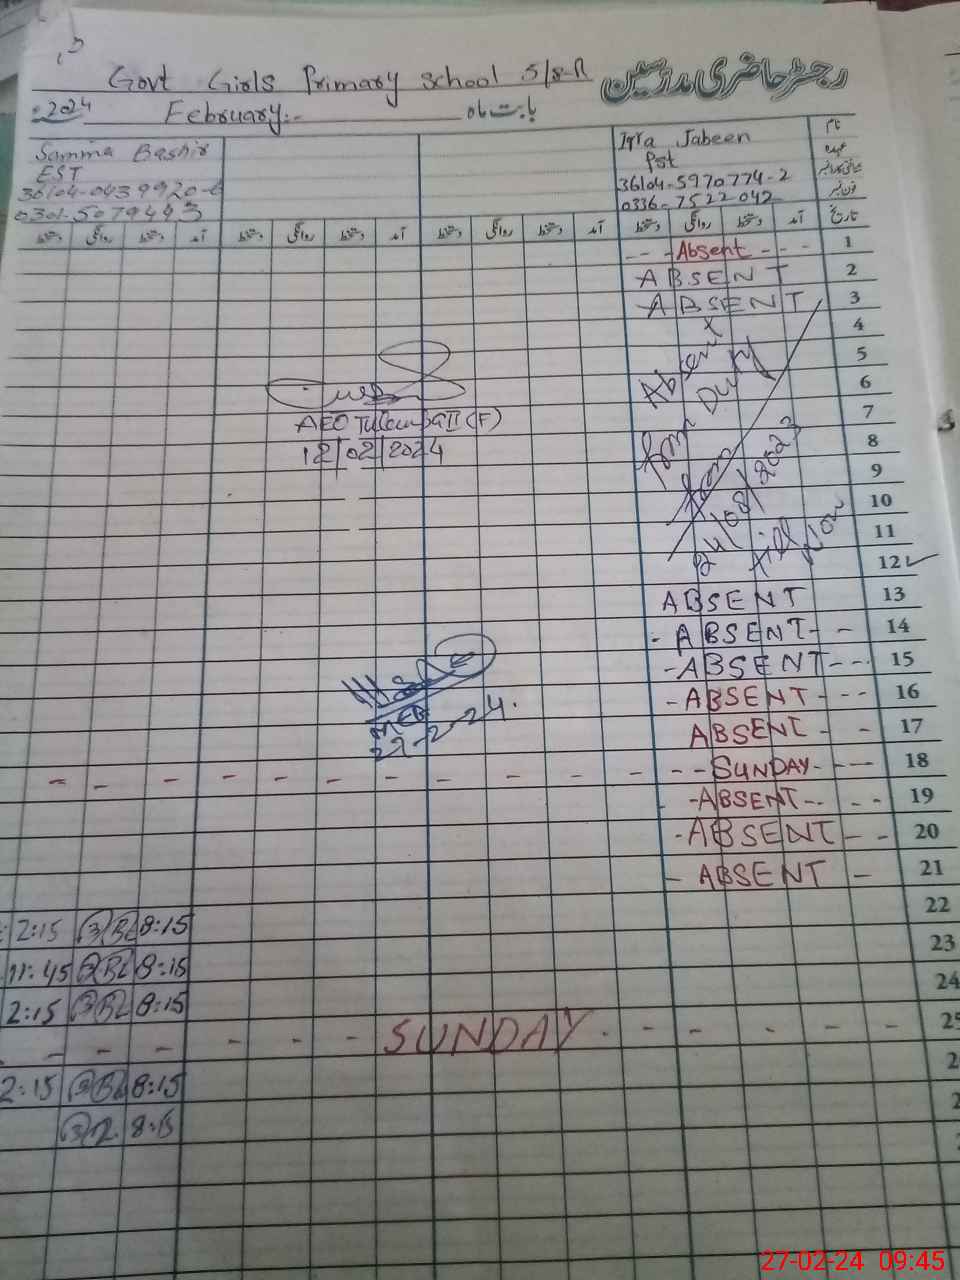 Govt Girls Primary School 5/8-R رجسٹر حاضری مدرسین
2024 February:- بابت ماہ
Samina Bashir Iqra Jabeen نام
EST Pst عہدہ
36104-0439920-6 36104-5970774-2 شناختی کارڈ نمبر
0301-5079443 0336-7522042 فون نمبر
دستخط روانگی دستخط آمد دستخط روانگی دستخط آمد دستخط روانگی دستخط آمد دستخط روانگی دستخط آمد تاریخ
- - - Absent - - - 1
ABSENT 2
ABSENT 3
4
5
6
7
8
9
10
11
12
Absent
Duty
from
24/08/2023
till Now
AEO
12/02/2024
ABSENT 13
- ABSENT - - 14
- ABSENT - - - 15
- ABSENT - - - 16
ABSENT - - 17
MEA
27-2-24.
- - - - - - - - - - - - - SUNDAY - - - - 18
- ABSENT - - - - 19
- ABSENT - - 20
- ABSENT - 21
22
2:15 8:15
23
11:45 8:15
24
2:15 8:15
- - - - - - SUNDAY. - - - - - 25
2:15 8:15
8:15
27-02-24 09:45